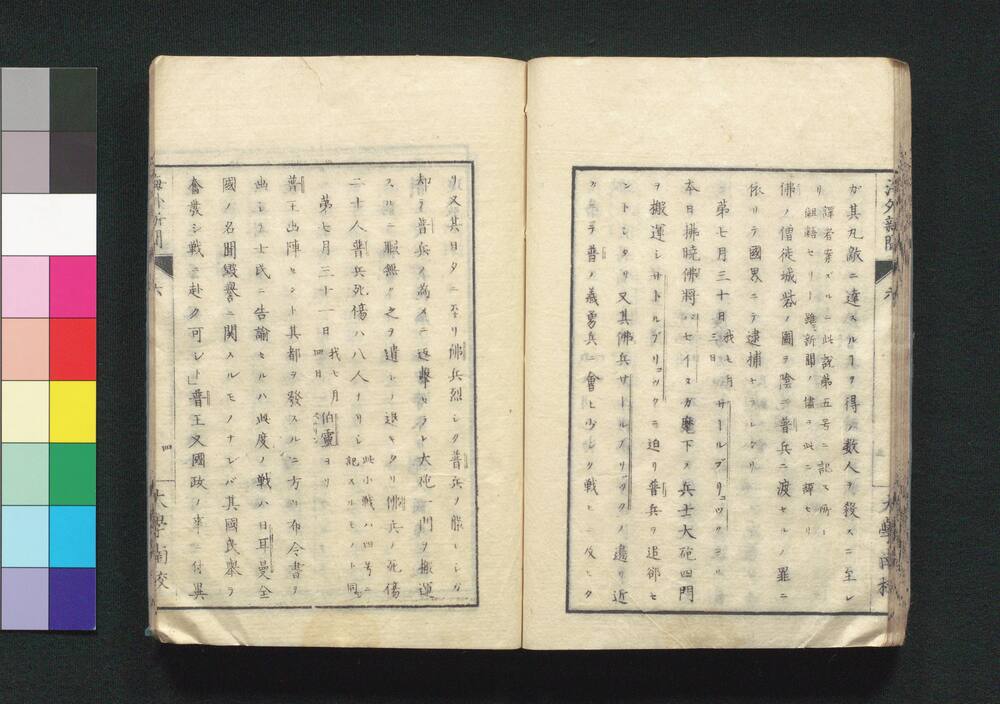 ガ其丸敵ニ達スルヿヲ得ス数人ヲ殺スニ至レ
リ 譯者案ズルニ此説第五号ニ記ス所ト
齟齬セリト雖新聞ノ儘ヲ此ニ譯セリ
佛ノ僧徒城砦ノ圖ヲ陰ニ普兵ニ渡セルノ罪ニ
依リテ國界ニテ逮捕セラレタリ
第七月三十日 我七月三日 サールブリュックヨリ
本日拂暁佛将 セイスガ麾下ノ兵士大砲四門
ヲ搬運シサールブリュックニ迫リ普兵ヲ追郤セ
ントシタリ又其佛兵サールブリュックノ邊リ近
カラ普ノ義勇兵ニ會ヒ少シク戦ヒ及ヒタ
リ又其日夕ニ至リ佛兵烈シク普兵ノ
却テ普兵ノ為メニ返撃セラレ大砲一門ヲ搬運
スルニ暇無ク之ヲ遺シテ退キタリ佛兵ノ死傷
二十人普兵死傷ハ八人ナリシ 此小戦ハ四号ニ
記スルモノト同
第七月三十一日 我七月四日 伯靈ヨリ
普王出陣セント其都ヲ發スルニ方リ布令書ヲ
出シテ士民ニ告諭セルハ此度ノ戦ハ日耳曼全
國ノ名聞毀譽ニ関スルモノナレバ其國民挙ラ
奮發シ戦ニ赴ク可シト普王又國政ノ事ニ付異
海外新聞 六
四
大學南校
海外新聞 六
大學南校